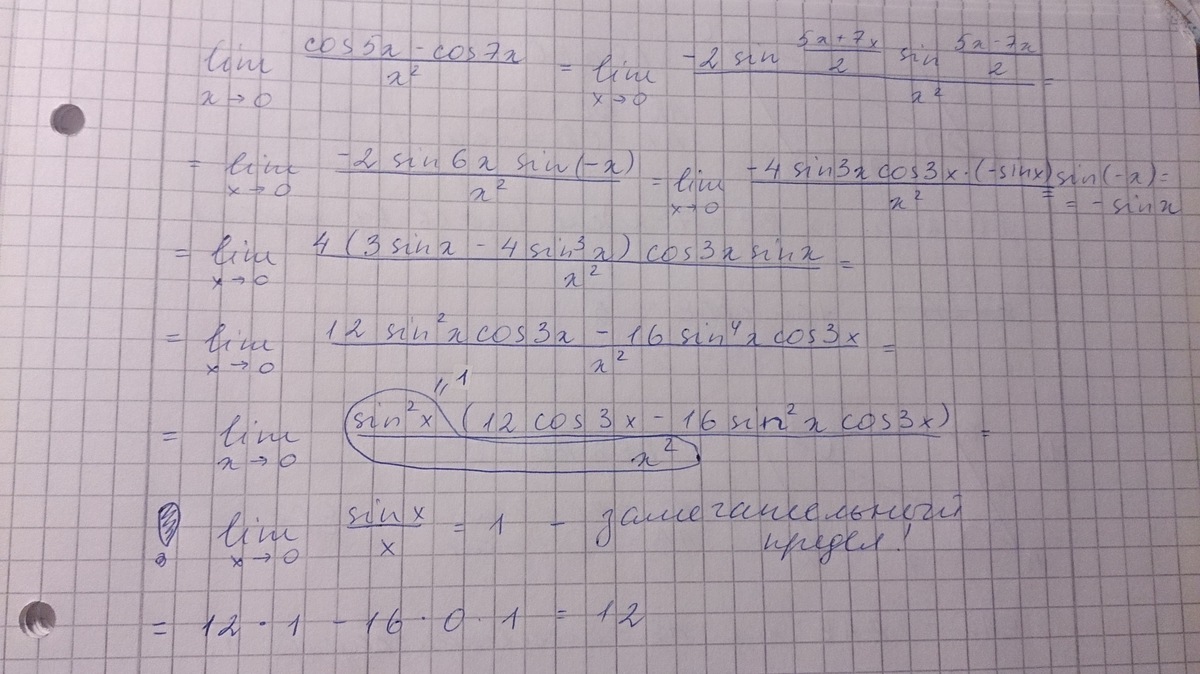 lim x→0 (cos5x - cos7x)/x² = lim x→0 (-2 sin (5x+7x)/2 sin (5x-7x)/2)/x² =
= lim x→0 (-2 sin6x sin(-x))/x² = lim x→0 (-4 sin3x cos3x·(-sinx))/x² = sin(-x) = = -sinx
= lim x→0 (4(3sinx - 4sin³x) cos3x sinx)/x² =
= lim x→0 (12 sin²x cos3x - 16 sin⁴x cos3x)/x² =
= lim x→0 (sin²x (12 cos3x - 16 sin²x cos3x))/x² = "1
lim x→0 sinx/x = 1 - замечательный
предел!
= 12·1 - 16·0·1 = 12